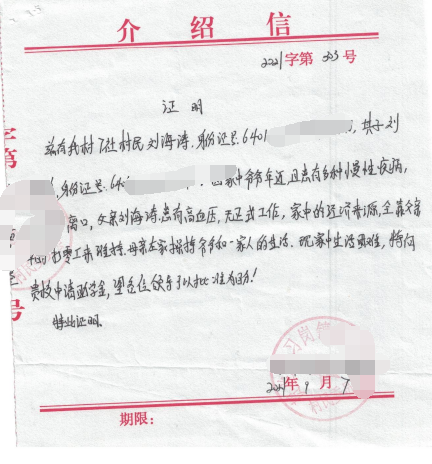 介绍信
2021字第003号
证明
兹有我村厂社村民刘海涛,身份证号:6401 ,其子刘
,身份证号:64 因家中爷爷年迈,且患有多种慢性疾病,
离口,父亲刘海涛患有高血压,无正式工作,家中的经济来源,全靠父亲
打零工来维持,母亲在家操持爷爷和一家人的生活。现家中生活困难,特向
贵校申请助学金,望各位领导予以批准为盼!
特此证明。
习岗
2021年9月7
期限: